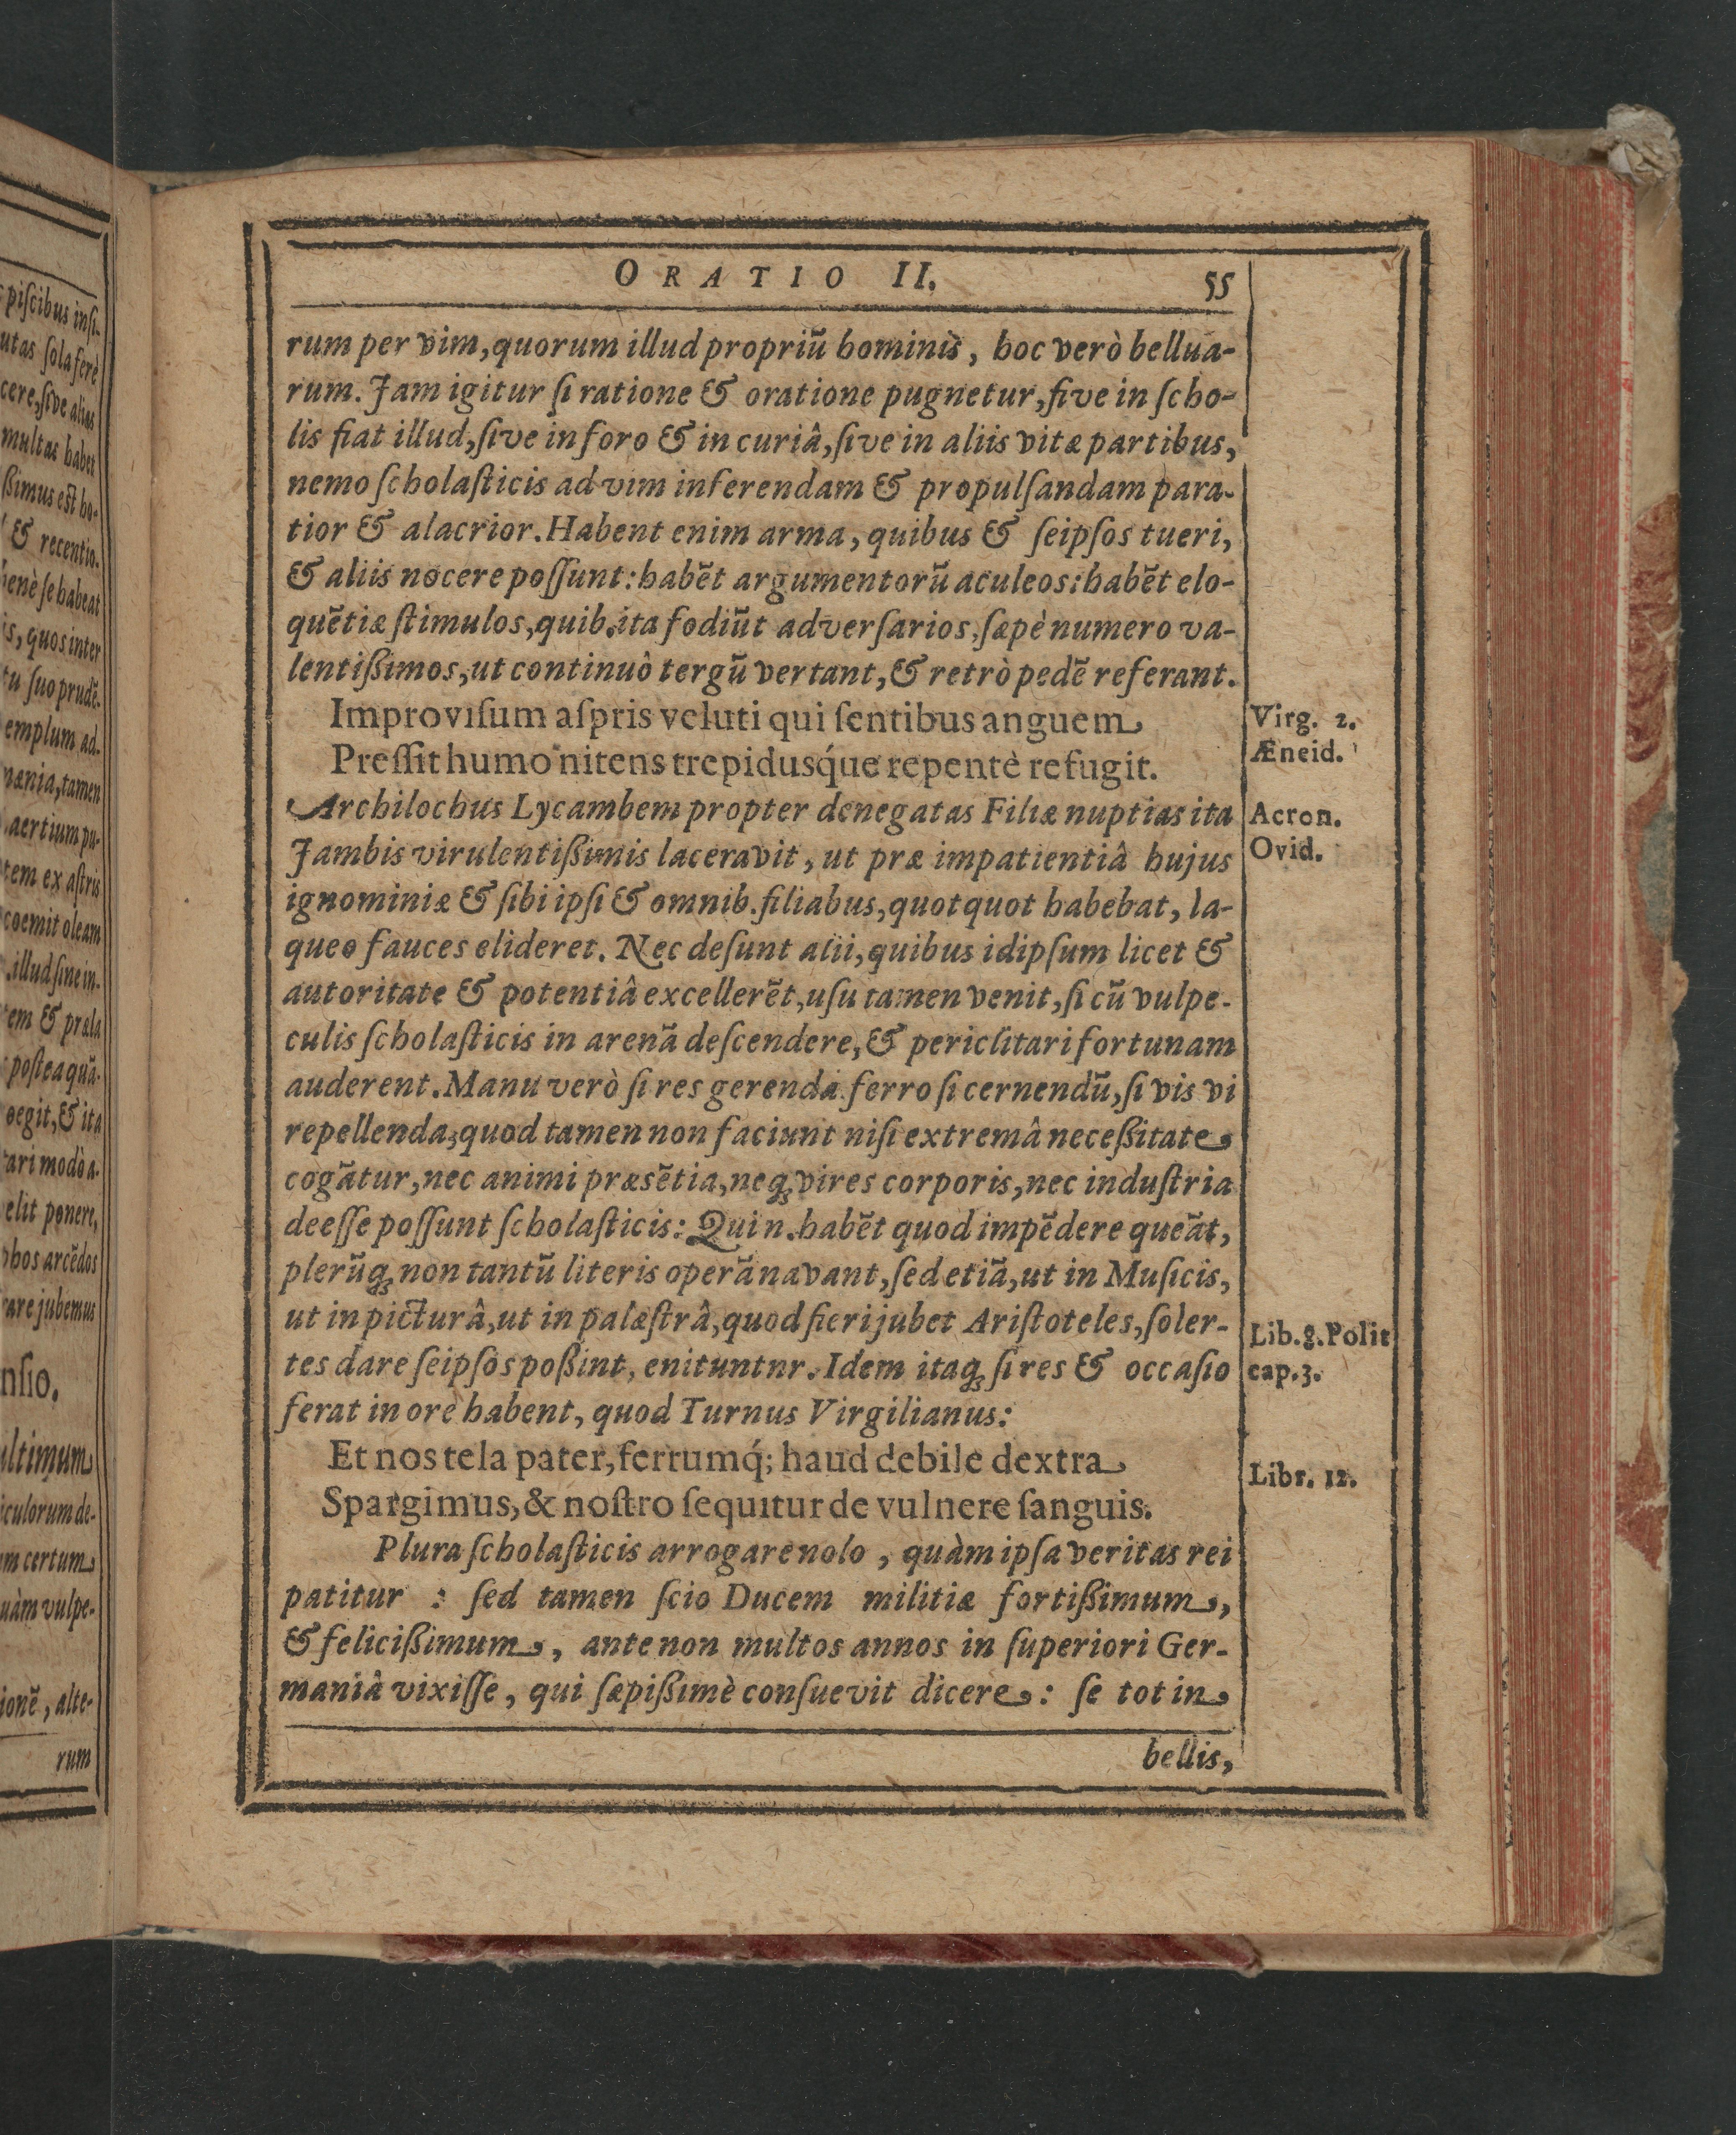 piſcibus inſi-
utas ſola ferè
cere, ſive alias
multas habet
ßimus est ho-
& recentio.
benè ſe habeat
is, quos inter
tu ſuo prudē.
emplum ad-
mænia, tamen
aertium pu-
tem ex aſtris
coemit oleam
illud ſine in-
em & præla
poſteaquā.
oegit, & ita
ari modò a-
elit ponere,
phos arcēdos
rare jubemus
nſio.
ultimum
iculorum de-
m certum
uàm vulpe-
ionē, alte-
rum
ORATIO II. 55
rum per vim, quorum illud propriū hominis, hoc verò bellua-
rum. Jam igitur ſi ratione & oratione pugnetur, ſive in ſcho-
lis fiat illud, ſive in foro & in curiâ, ſive in aliis vitæ partibus,
nemo ſcholaſticis ad vim inferendam & propulſandam para-
tior & alacrior. Habent enim arma, quibus & ſeipſos tueri,
& aliis nocere poſſunt: habēt argumentorū aculeos: habēt elo-
quētiæ ſtimulos, quib. ita fodiūt adverſarios, ſæpè numero va-
lentißimos, ut continuô tergū vertant, & retrò pedē referant.
Improviſum aſpris veluti qui ſentibus anguem
Preſſit humo nitens trepidusq́ue repentè refugit.
Virg. 2.
Æneid.
Archilochus Lycambem propter denegatas Filiæ nuptias ita
Jambis virulentißimis laceravit, ut præ impatientiâ hujus
Acron.
Ovid.
ignominiæ & ſibi ipſi & omnib. filiabus, quotquot habebat, la-
queo fauces elideret. Nec deſunt alii, quibus idipſum licet &
autoritate & potentiâ excellerēt, uſu tamen venit, ſi cū vulpe-
culis ſcholaſticis in arenā deſcendere, & periclitari fortunam
auderent. Manu verò ſi res gerenda ferro ſi cernendū, ſi vis vi
repellenda; quod tamen non faciunt niſi extremâ neceßitate
cogātur, nec animi præsētia, neq; vires corporis, nec induſtria
deeſſe poſſunt ſcholaſticis: Qui n. habēt quod impēdere queāt,
plerūq; non tantū literis operā navant, ſed etiā, ut in Muſicis,
ut in picturâ, ut in palæſtrâ, quod fieri jubet Ariſtoteles, ſoler-
tes dare ſeipſos poßint, enituntnr. Idem itaq; ſi res & occaſio
Lib. 8. Polit
cap. 3.
ferat in ore habent, quod Turnus Virgilianus:
Et nos tela pater, ferrumq́; haud debile dextra
Spargimus, & noſtro ſequitur de vulnere ſanguis.
Libr. 12.
Plura ſcholaſticis arrogare nolo, quàm ipſa veritas rei
patitur : ſed tamen ſcio Ducem militiæ fortißimum,
& felicißimum, ante non multos annos in ſuperiori Ger-
maniâ vixiſſe, qui ſæpißimè conſuevit dicere: ſe tot in
bellis,